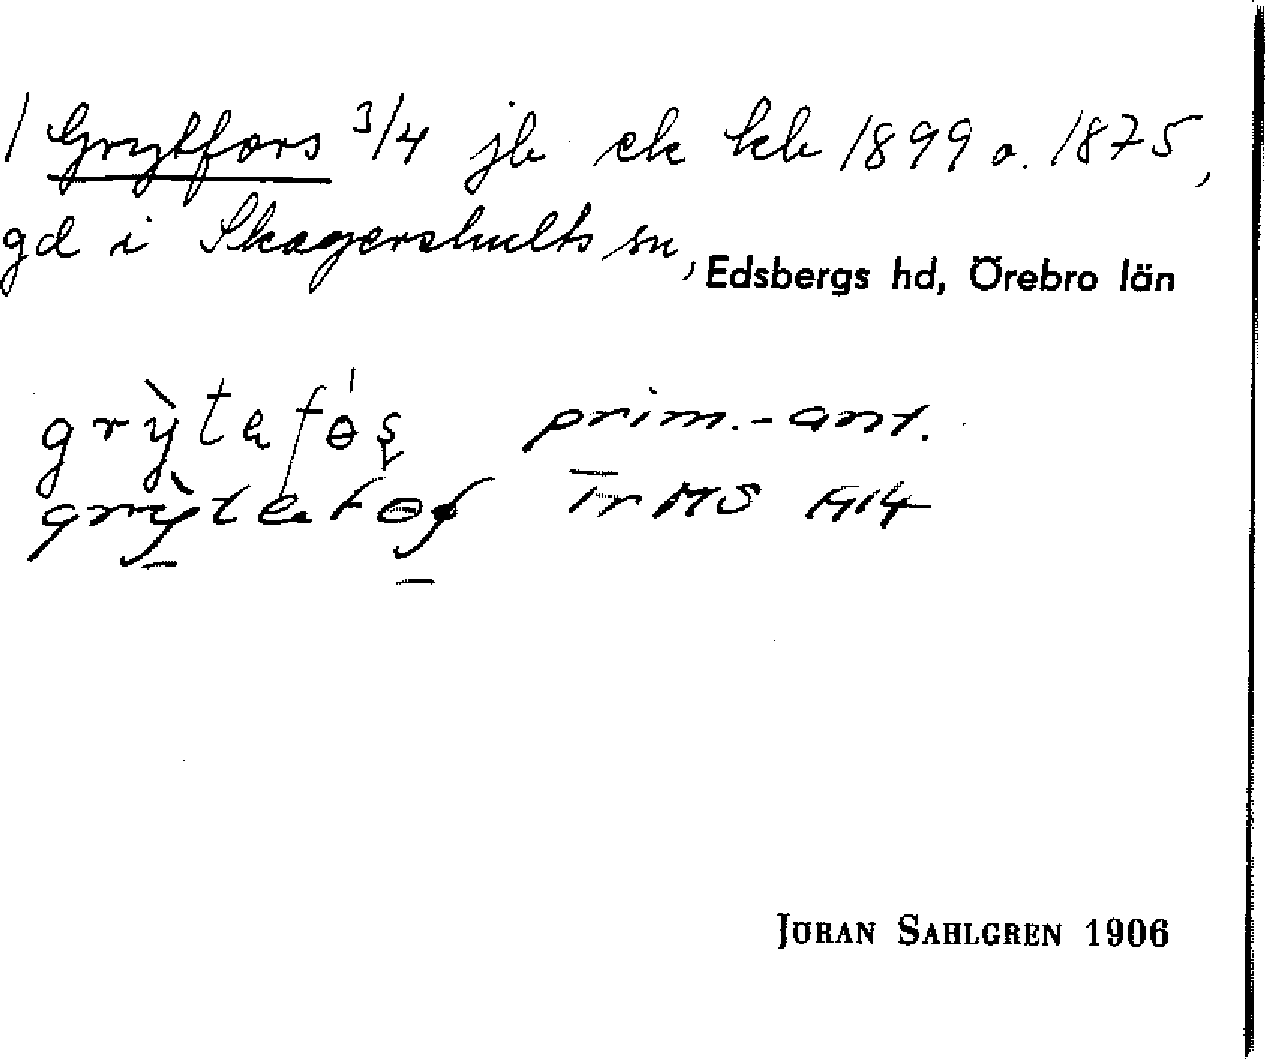 / Grytfors 3/4 jb ek kb 1899 o. 1875,
gd i Skagershults sn, Edsbergs hd, Örebro län
grỳtefo̍s prim.-ant.
TrMS 1914
JÖRAN SAHLGREN 1906